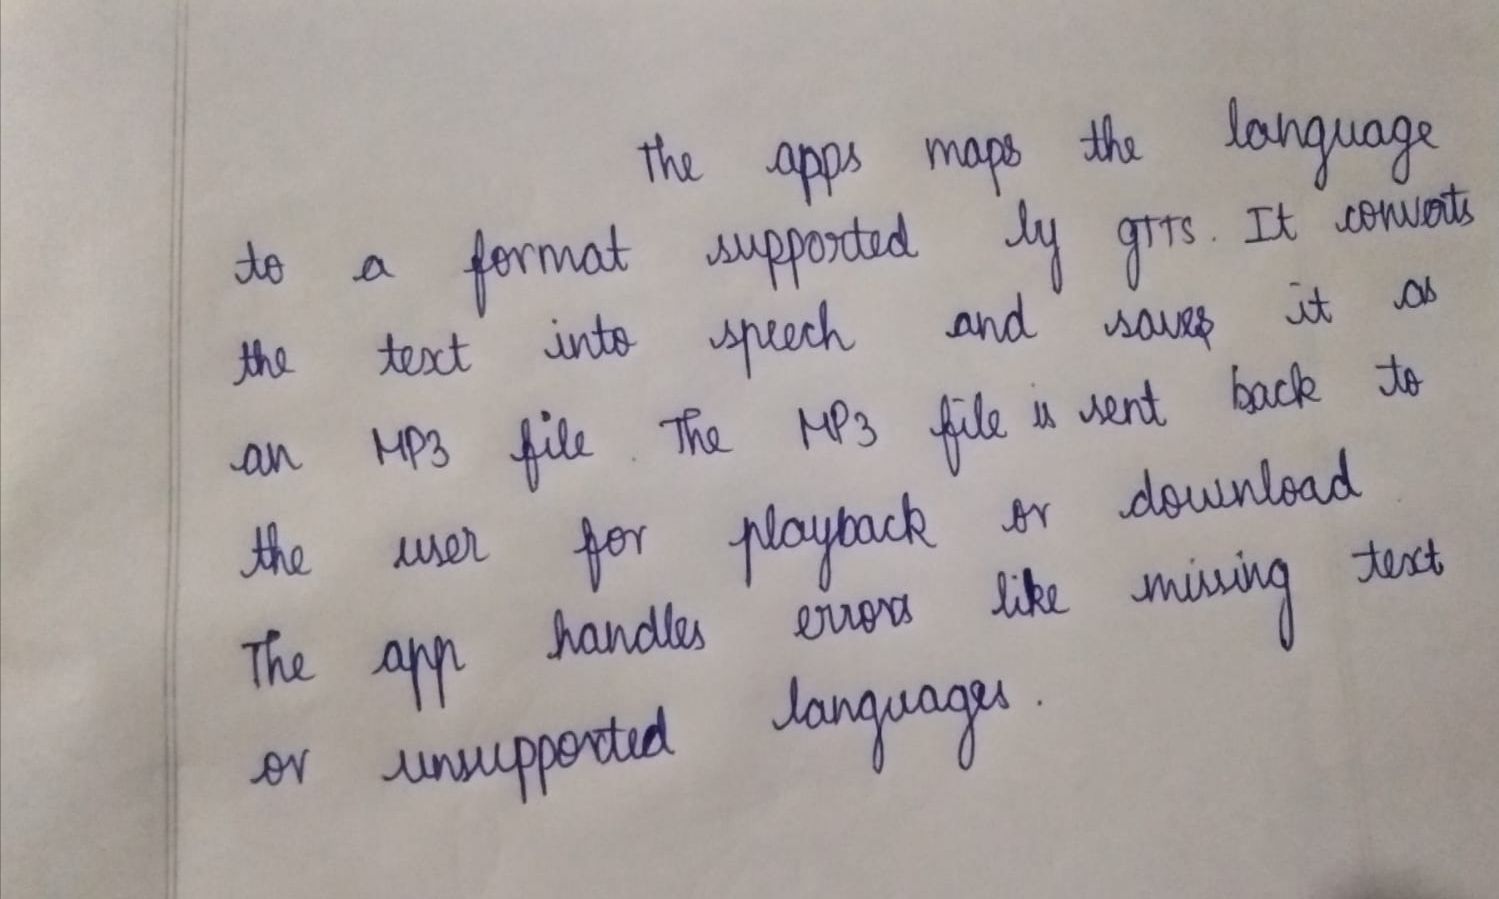 The apps maps the language
to a format supported by gTTS. It converts
the text into speech and saves it as
an MP3 file. The MP3 file is sent back to
the user for playback or download.
The app handles errors like missing text
or unsupported languages.